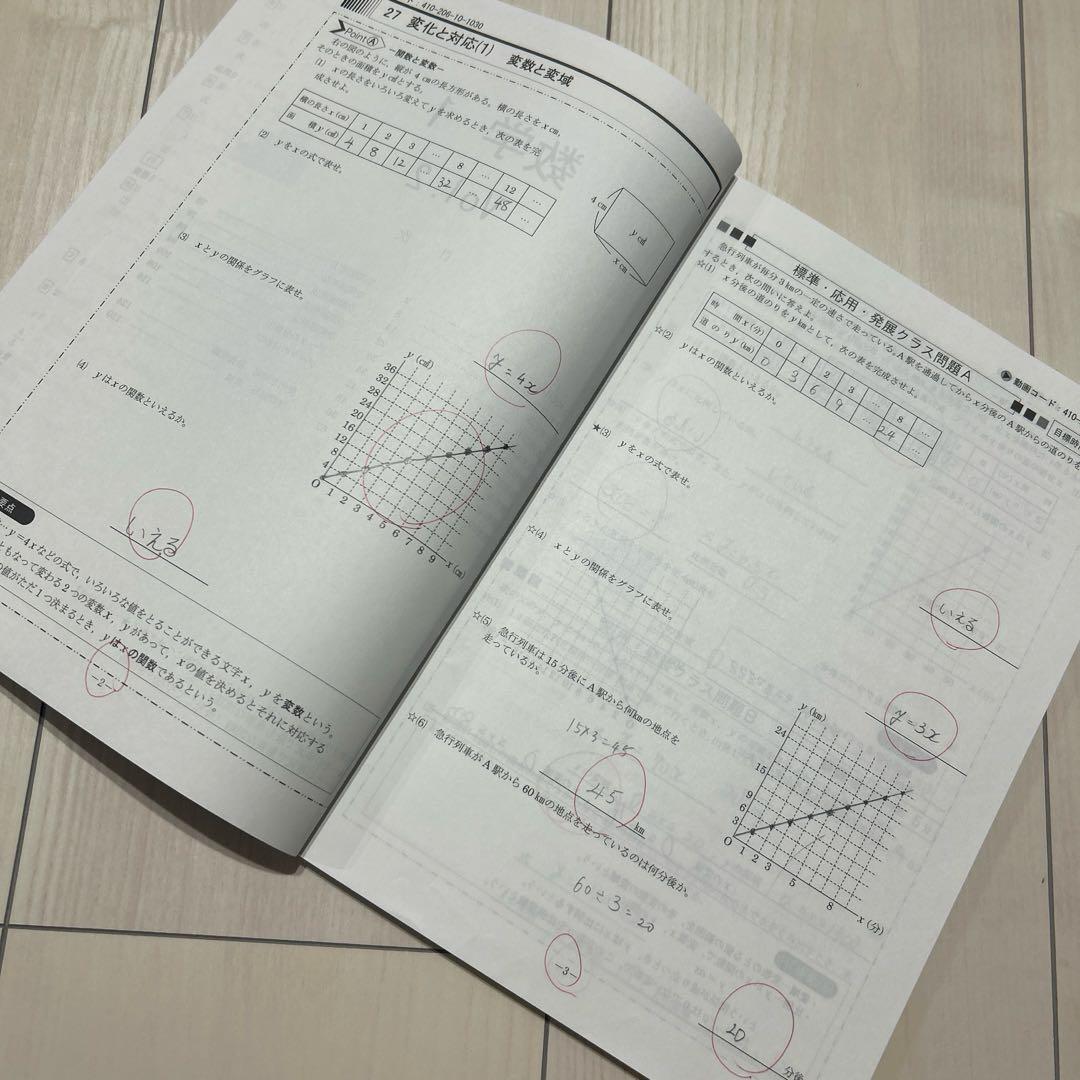 410-206-10-1030
27 変化と対応(1) 変数と変域
Point A
―関数と変数―
右の図のように，縦が4cmの長方形がある。横の長さをx cm，
そのときの面積をy㎠とする。
(1) xの長さをいろいろ変えてyを求めるとき，次の表を完
成させよ。
横の長さx(cm) 1 2 3 … 8 … 12 …
面 積y(㎠) 4 8 12 … 32 … 48 …
4 cm
y ㎠
x cm
(2) yをxの式で表せ。
y=4x
(3) xとyの関係をグラフに表せ。
y (㎠)
36
32
28
24
20
16
12
8
4
O 1 2 3 4 5 6 7 8 9 x(cm)
(4) yはxの関数といえるか。
いえる
要点
…y=4xなどの式で，いろいろな値をとることができる文字x，yを変数という。
ともなって変わる2つの変数x，yがあって，xの値を決めるとそれに対応する
の値がただ1つ決まるとき，yはxの関数であるという。
-2-
標準・応用・発展クラス問題A
動画コード：410-
目標時
急行列車が毎分3kmの一定の速さで走っている。A駅を通過してからx分後のA駅からの道のりを
するとき，次の問いに答えよ。
☆(1) x分後の道のりをy kmとして，次の表を完成させよ。
時 間x(分) 0 1 2 3 … 8 …
道のりy(km) 0 3 6 9 … 24 …
☆(2) yはxの関数といえるか。
いえる
★(3) yをxの式で表せ。
y=3x
☆(4) xとyの関係をグラフに表せ。
y (km)
24
15
9
6
3
O 1 2 3 5 8 x(分)
☆(5) 急行列車は15分後にA駅から何kmの地点を
走っているか。
15×3=45
45 km
☆(6) 急行列車がA駅から60kmの地点を走っているのは何分後か。
60÷3=20
20 分後
-3-